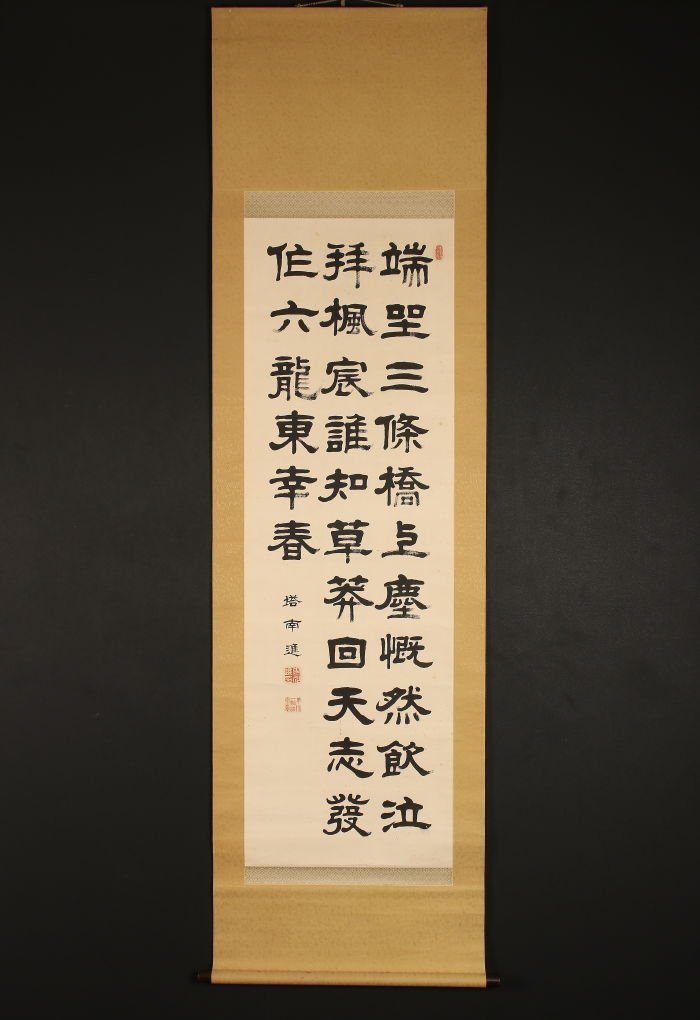 端坐三條橋上塵慨然飲泣
拜楓宸誰知草莽回天志發
作六龍東幸春
塔南進